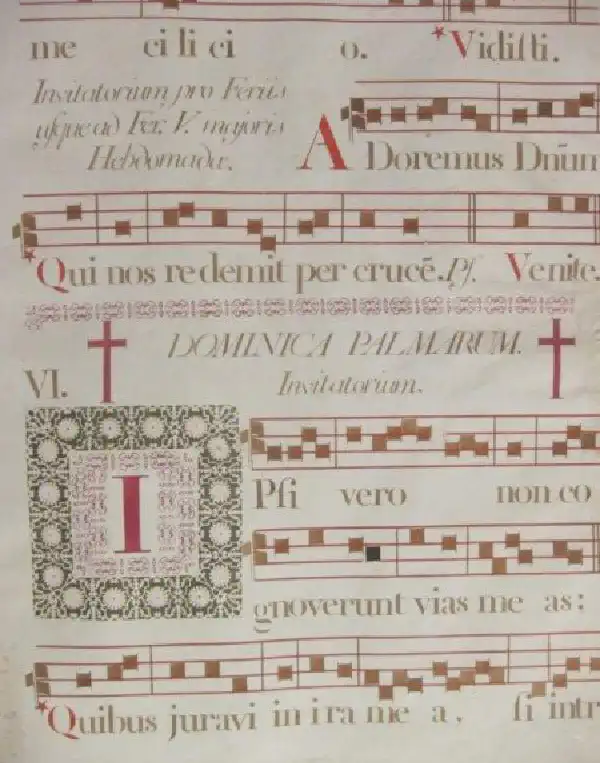 me ci li ci o. *Vidiſti.
Invitatorium pro Feriis
uſque ad Fer. V. majoris
Hebdomadæ.
ADoremus Dn̄um
*Qui nos redemit per crucē. Pſ. Venite.
DOMINICA PALMARUM.
VI. Invitatorium.
IPſi vero non co
gnoverunt vias me as:
*Quibus juravi in i ra me a, ſi intr